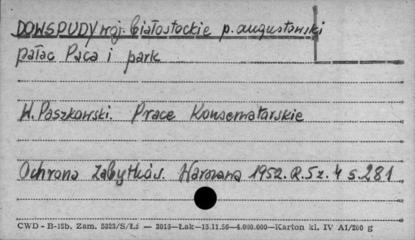 DOWSPUDY woj. białostockie p. augustowski
pałac Paca i park
W. Paszkowski. Prace Konserwatorskie
Ochrona Zabytków. Warszawa 1952. R. 5 z. 4 s. 281
CWD - B-15b, Zam. 5323/S/Łś — 2013—Łak—15.11.56—4.000.000—Karton kl. IV A1/200 g